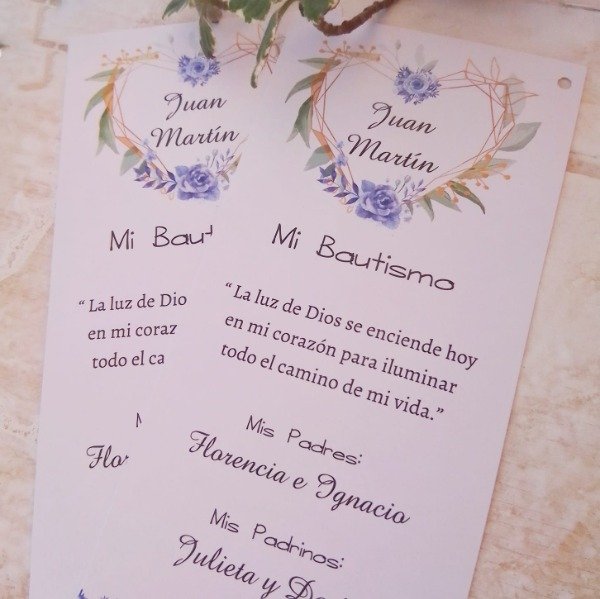 Juan
Martín
Mi Bautismo
“La luz de Dios se enciende hoy
en mi corazón para iluminar
todo el camino de mi vida.”
Mis Padres:
Florencia e Ignacio
Mis Padrinos:
Julieta y
Juan
Martín
Mi
“ La luz de Dio
en mi coraz
todo el ca
M
Flo